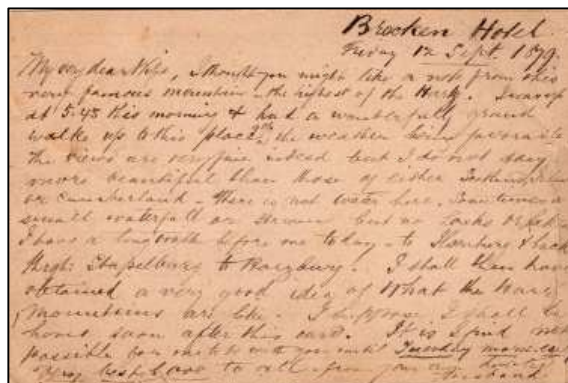 Brocken Hotel
Friday 12 Sept. 1879.
My very dear Wife, I thought you might like a note from this
very famous mountain - the highest of the Hartz. I was up
at 5.45 this morning & had a wonderfully grand
walk up to this place, the weather being favorable
the views are very fine indeed but I do not say
more beautiful than those of either
or Cumberland - there is not water here. Sometimes a
small waterfall or stream but no Locks or Lakes
I have a long walk before me today - to & back
to Harzburg. I shall then have
obtained a very good idea of what the Harz
Mountains are like. I suppose I shall be
home soon after this card. It is I find not
possible for me to be with you until Tuesday morning
Very best love to all from your
husband